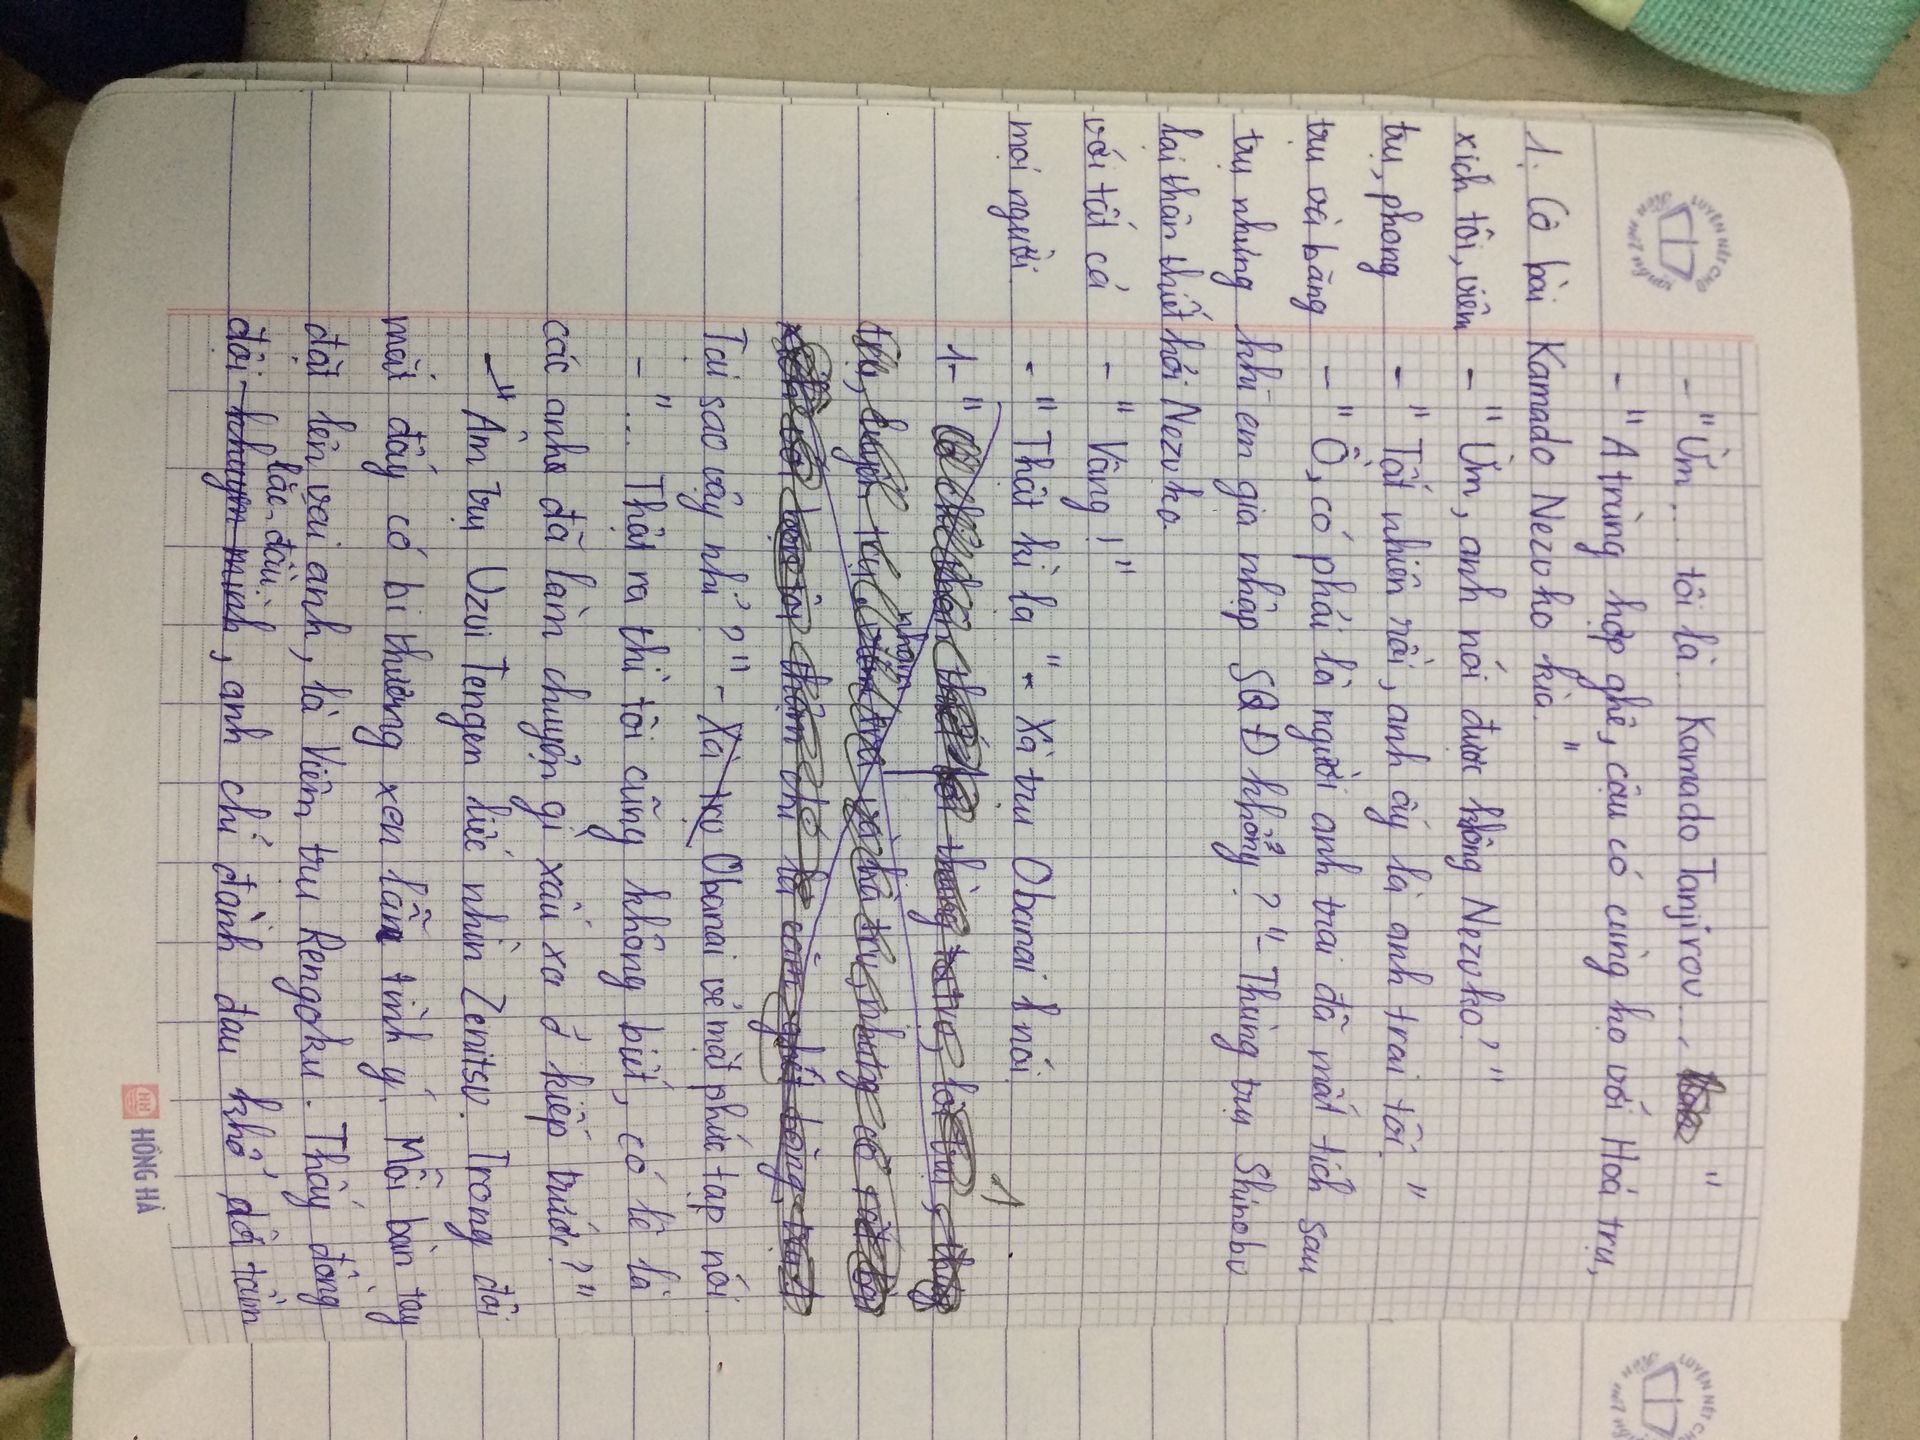 - "Ừm... tôi là... Kamado Tanjirou..., "
- "A trùng hợp ghê, cậu có cùng họ với Hoả trụ,
1. Cô bài Kamado Nezuko kìa."
xích tôi, viêm - "Ừm, anh nói được không Nezuko?"
trụ, phong - "Tất nhiên rồi, anh ấy là anh trai tôi."
trụ và hằng - "Ồ, có phải là người anh trai đã mất tích sau
trụ nhưng khi em gia nhập SQĐ không?" - Thùng trụ Shinobu
lại thân thiết hỏi Nezuko.
với tất cả - "Vâng!"
mọi người. - "Thật kì lạ" - Xà trụ Obanai nói.
1- "
trụ, luyến trụ, nham
thậm chí là
Tại sao vậy nhỉ?" - Xà trụ Obanai vẻ mặt phức tạp nói.
- "... Thật ra thì tôi cũng không biết, có lẽ là
các anh đã làm chuyện gì xấu xa ở kiếp trước?"
- " Âm trụ Uzui Tengen liếc nhìn Zenitsu. Trong đôi
mắt đấy có bi thương xen lẫn tình ý. Một bàn tay
đặt lên vai anh, là Viêm trụ Rengoku. Thấy đồng
lắc đầu
đội khuyên mình, anh chỉ đành đau khổ dời tầm
LUYỆN NÉT CHỮ
RÈN NẾT NGƯỜI
HH HỒNG HÀ
LUYỆN NÉT CHỮ